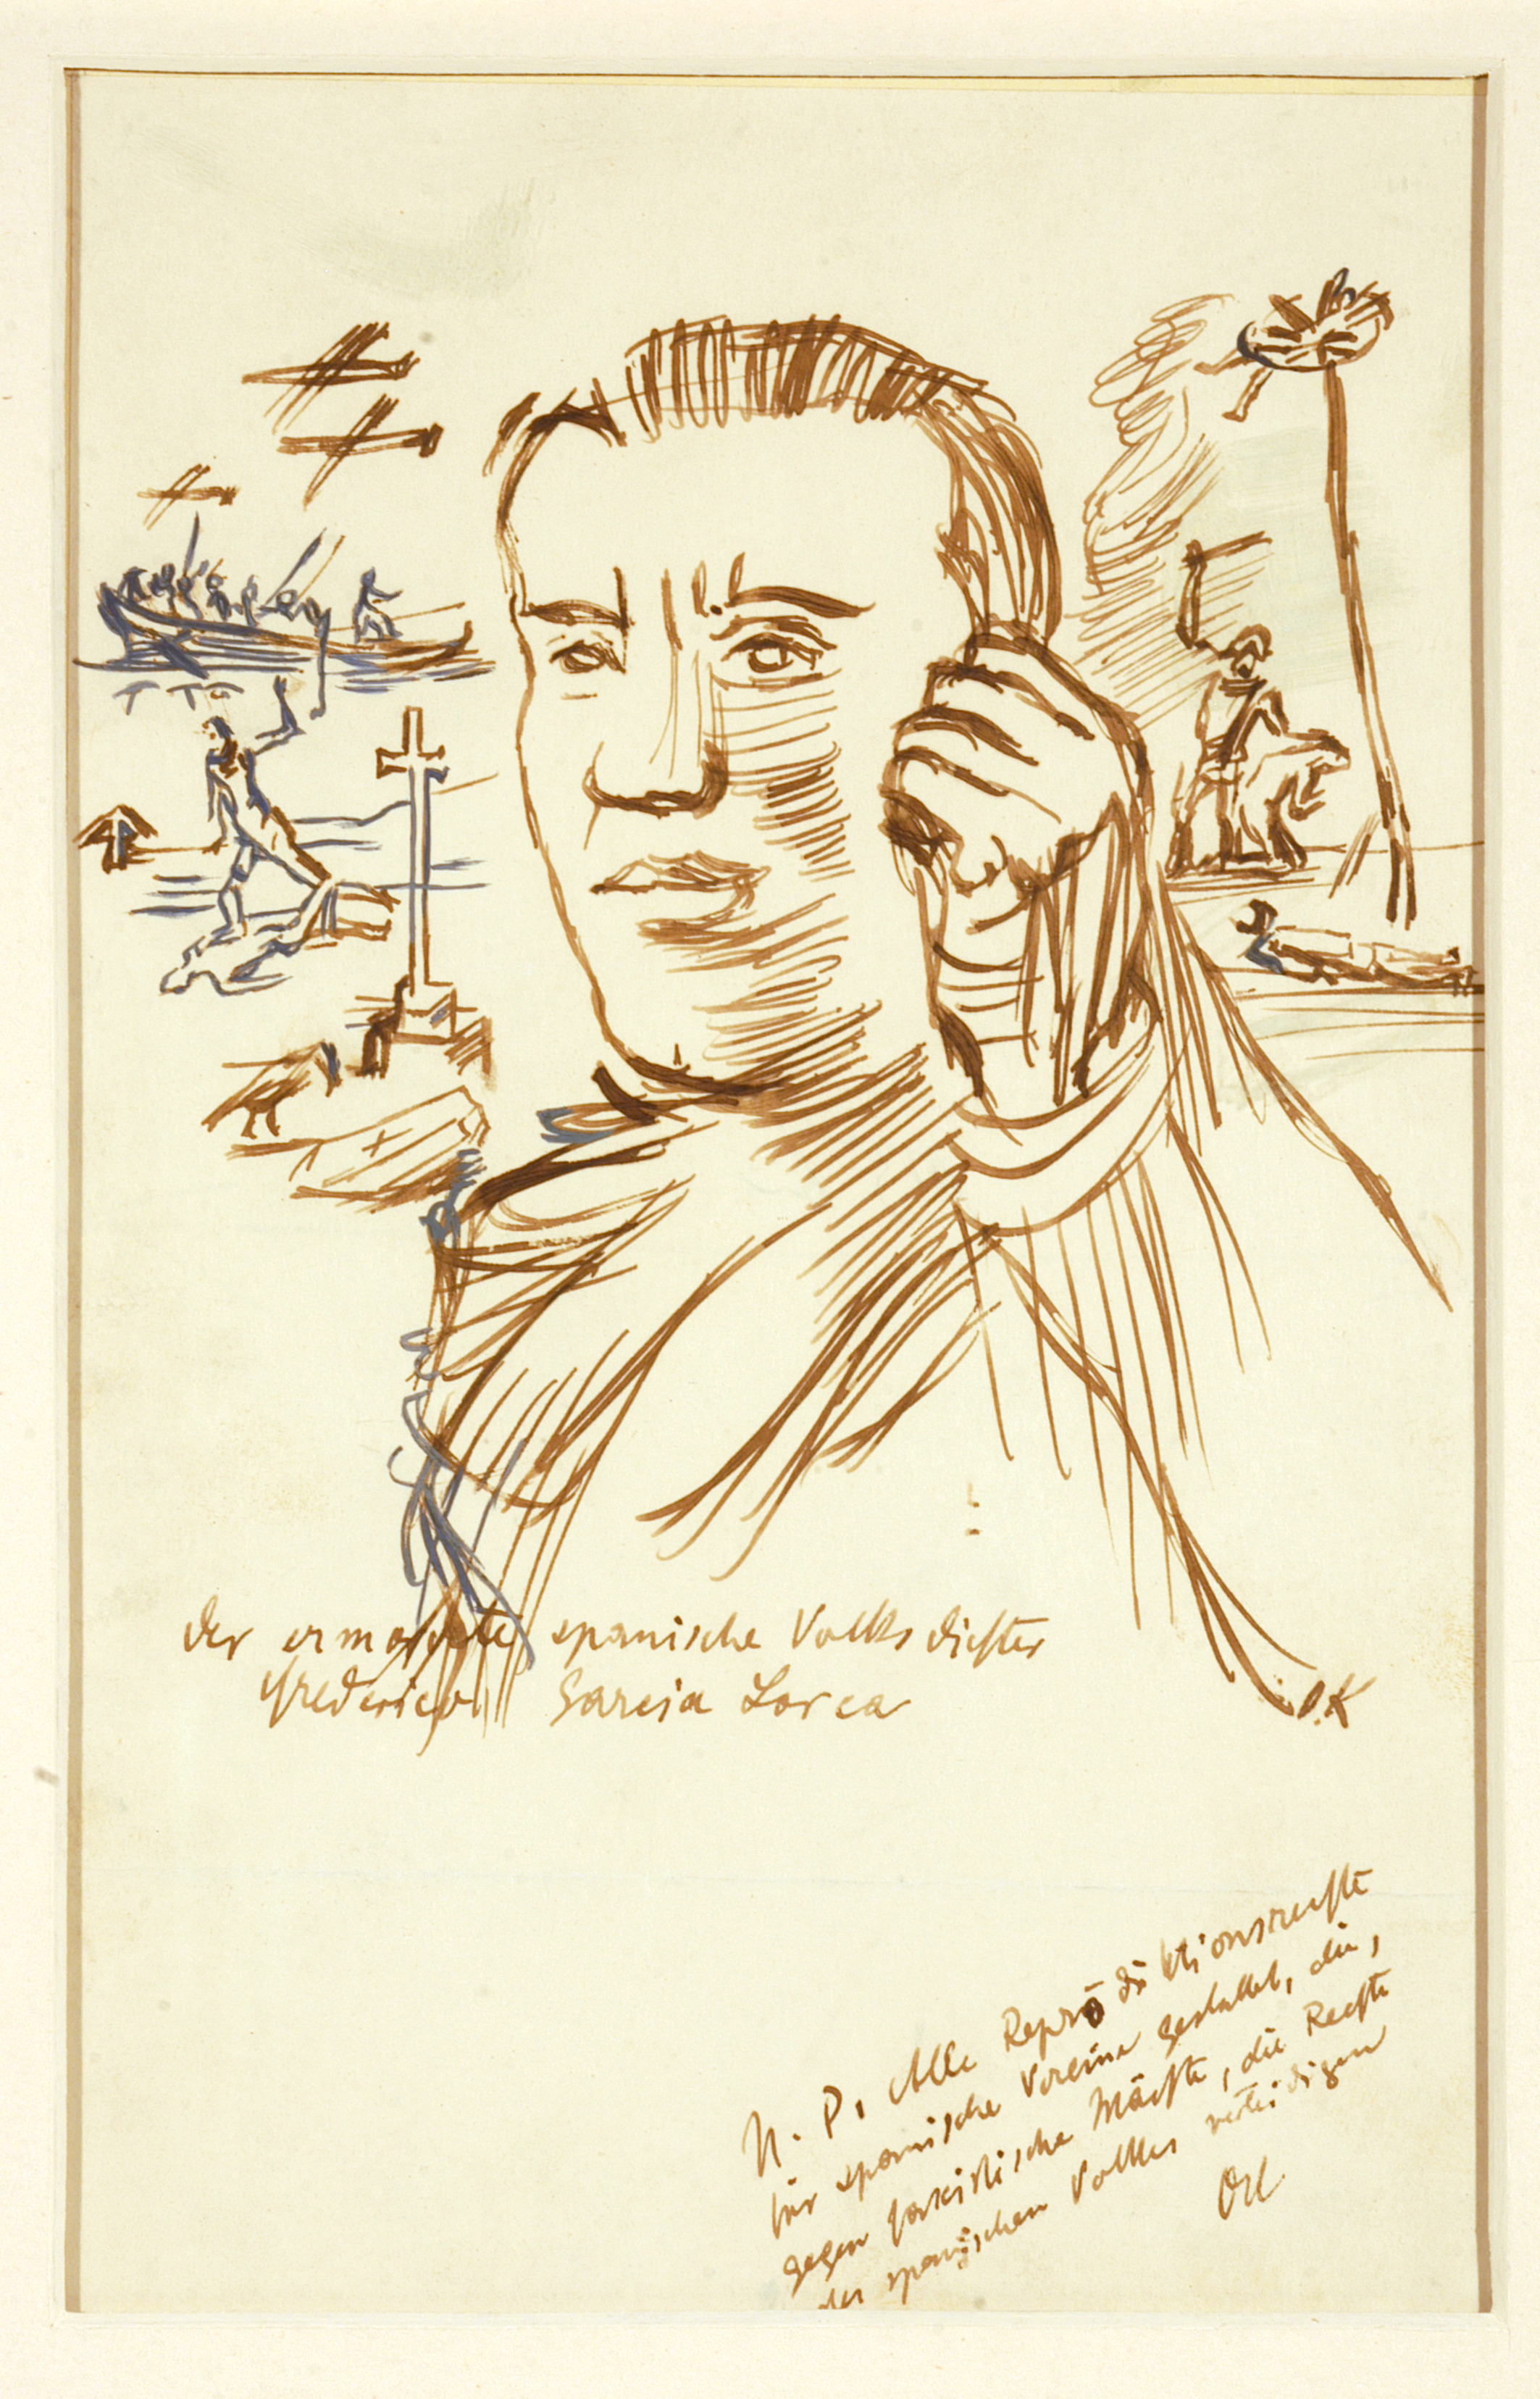 der ermordete spanische Volksdichter
Frederico Garcia Lorca
O.K
N. P. Alle Reproduktionsrechte
für spanische Vereine gestattet, die,
gegen faschistische Mächte, die Rechte
des spanischen Volkes verteidigen
OK